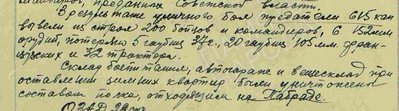 преданных Советской власти.
В результате уличного боя предателем 615 кап
вывели из строя 200 бойцов и командиров, 6 152мм
орудий, потеряно 5 гаубиц 37г, 20 гаубиц 105 мм фран-
цузских и 32 трактора.
Склад боепитания, автогараж и вещсклад при
оставлении зимних квартир были уничтожены
составом полка, отходящим на